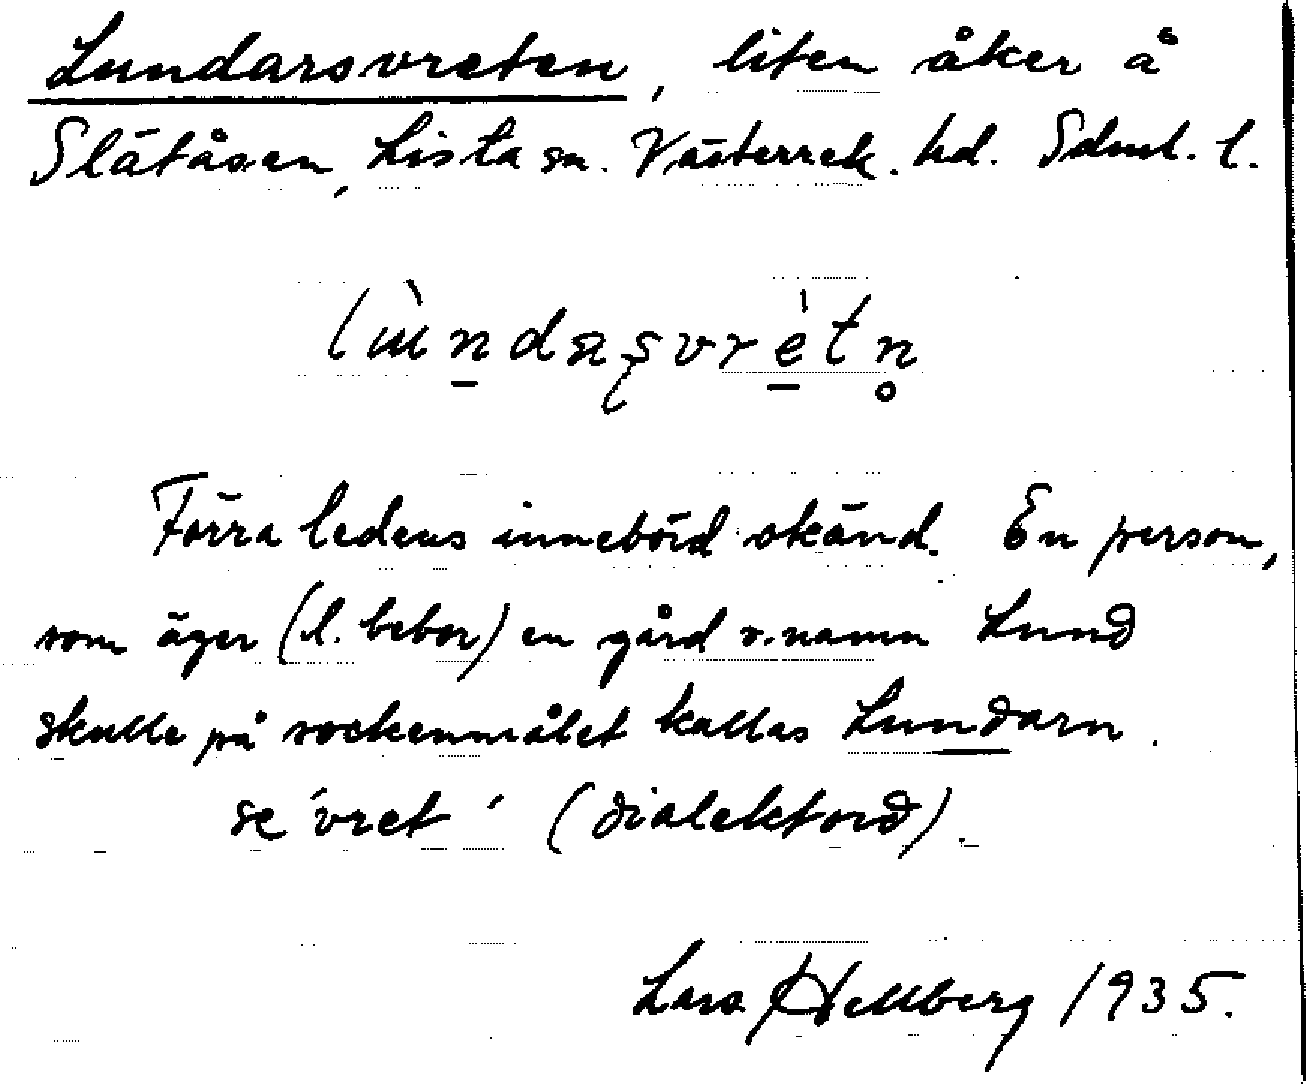 Lundarsvreten, liten åker å
Slätåsen, Lista sn. Västerrek. hd. Sdml. l.
Förra ledens innebörd okänd. En person,
som äger (l. bebor) en gård v. namn Lund
skulle på sockenmålet kallas Lundarn.
se 'vret' (dialektord).
Lars Hellberg 1935.